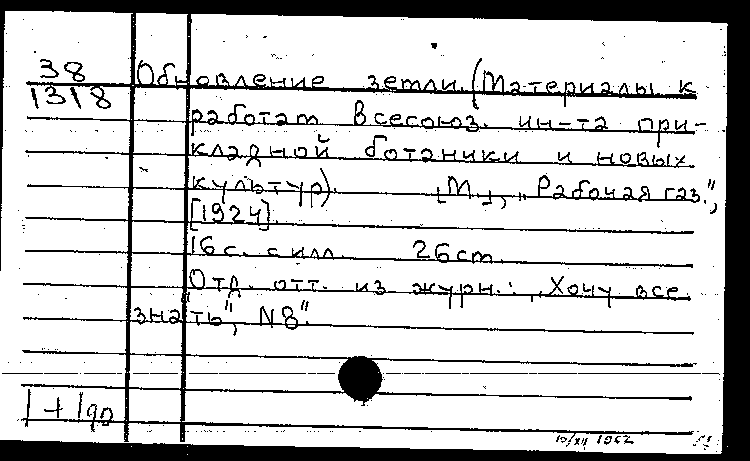 38
1318
Обновление земли. (Материалы к
работам Всесоюз. ин-та при-
кладной ботаники и новых
культур). [М.], „Рабочая газ.",
[1924].
16 с. с илл. 26 cm.
Отд. отт. из журн.: „Хочу все
знать", N8".
1 + 1
10/XII 1962